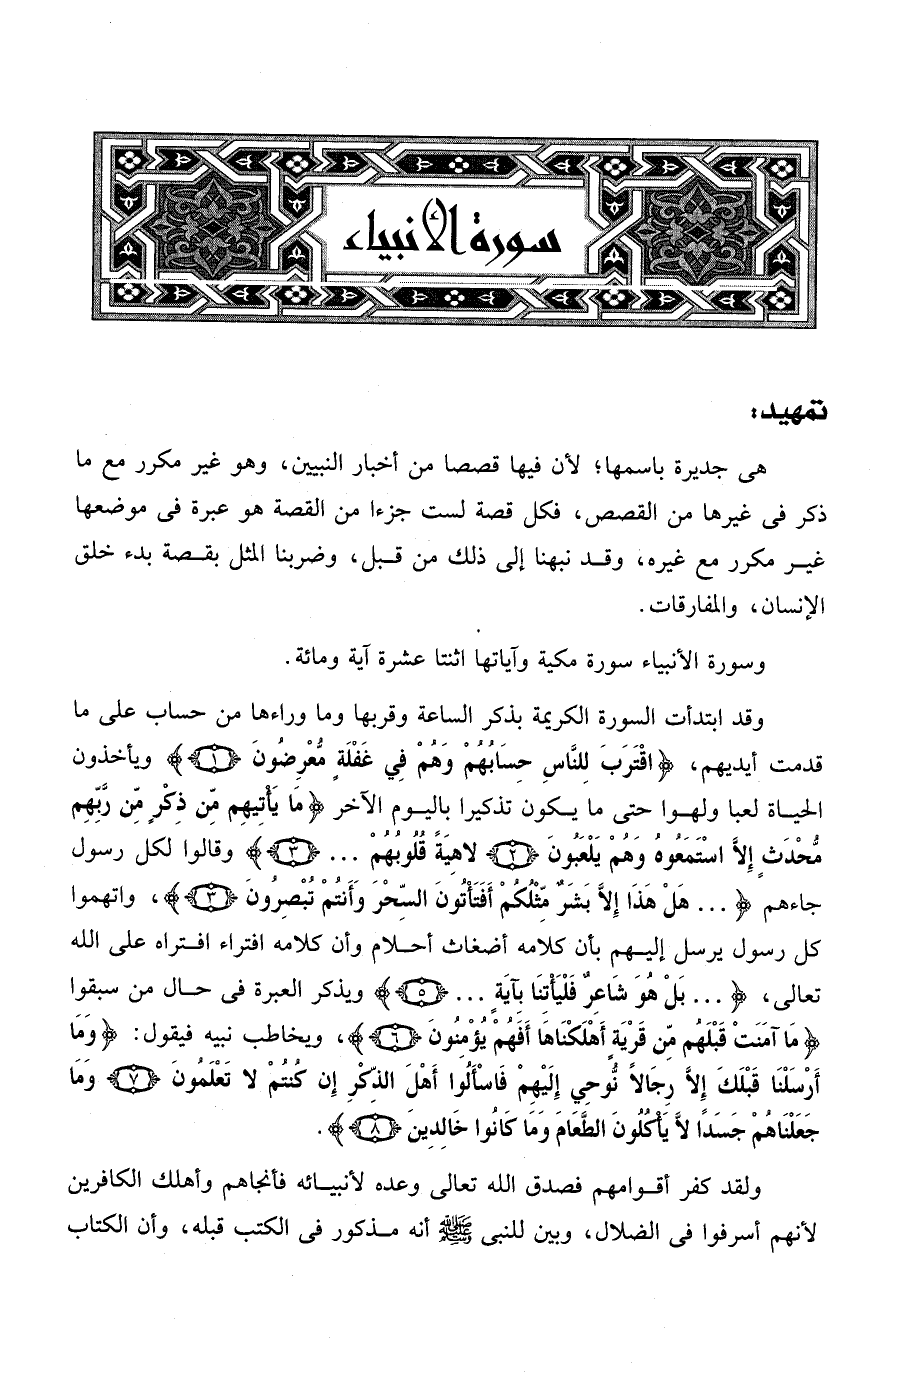 سورة الأنبياء
تمهيد:
هى جديرة باسمها؛ لأن فيها قصصا من أخبار النبيين، وهو غير مكرر مع ما
ذكر فى غيرها من القصص، فكل قصة لست جزءا من القصة هو عبرة فى موضعها
غير مكرر مع غيره، وقد نبهنا إلى ذلك من قبل، وضربنا المثل بقصة بدء خلق
الإنسان، والمفارقات.
وسورة الأنبياء سورة مكية وآياتها اثنتا عشرة آية ومائة.
وقد ابتدأت السورة الكريمة بذكر الساعة وقربها وما وراءها من حساب على ما
قدمت أيديهم، ﴿اقْتَرَبَ لِلنَّاسِ حِسَابُهُمْ وَهُمْ فِي غَفْلَةٍ مُّعْرِضُونَ ﴿١﴾﴾ ويأخذون
الحياة لعبا ولهوا حتى ما يكون تذكيرا باليوم الآخر ﴿مَا يَأْتِيهِم مِّن ذِكْرٍ مِّن رَّبِّهِم
مُّحْدَثٍ إِلاَّ اسْتَمَعُوهُ وَهُمْ يَلْعَبُونَ ﴿٢﴾ لاهِيَةً قُلُوبُهُمْ ... ﴿٣﴾﴾ وقالوا لكل رسول
جاءهم ﴿... هَلْ هَذَا إِلاَّ بَشَرٌ مِّثْلُكُمْ أَفَتَأْتُونَ السِّحْرَ وَأَنتُمْ تُبْصِرُونَ ﴿٣﴾﴾، واتهموا
كل رسول يرسل إليهم بأن كلامه أضغاث أحلام وأن كلامه افتراء افتراه على الله
تعالى، ﴿... بَلْ هُوَ شَاعِرٌ فَلْيَأْتِنَا بِآيَةٍ ... ﴿٥﴾﴾ ويذكر العبرة فى حال من سبقوا
﴿مَا آمَنَتْ قَبْلَهُم مِّن قَرْيَةٍ أَهْلَكْنَاهَا أَفَهُمْ يُؤْمِنُونَ ﴿٦﴾﴾، ويخاطب نبيه فيقول: ﴿وَمَا
أَرْسَلْنَا قَبْلَكَ إِلاَّ رِجَالاً نُّوحِي إِلَيْهِمْ فَاسْأَلُوا أَهْلَ الذِّكْرِ إِن كُنتُمْ لا تَعْلَمُونَ ﴿٧﴾ وَمَا
جَعَلْنَاهُمْ جَسَدًا لاَّ يَأْكُلُونَ الطَّعَامَ وَمَا كَانُوا خَالِدِينَ ﴿٨﴾﴾.
ولقد كفر أقوامهم فصدق الله تعالى وعده لأنبيائه فأنجاهم وأهلك الكافرين
لأنهم أسرفوا فى الضلال، وبين للنبى ﷺ أنه مذكور فى الكتب قبله، وأن الكتاب